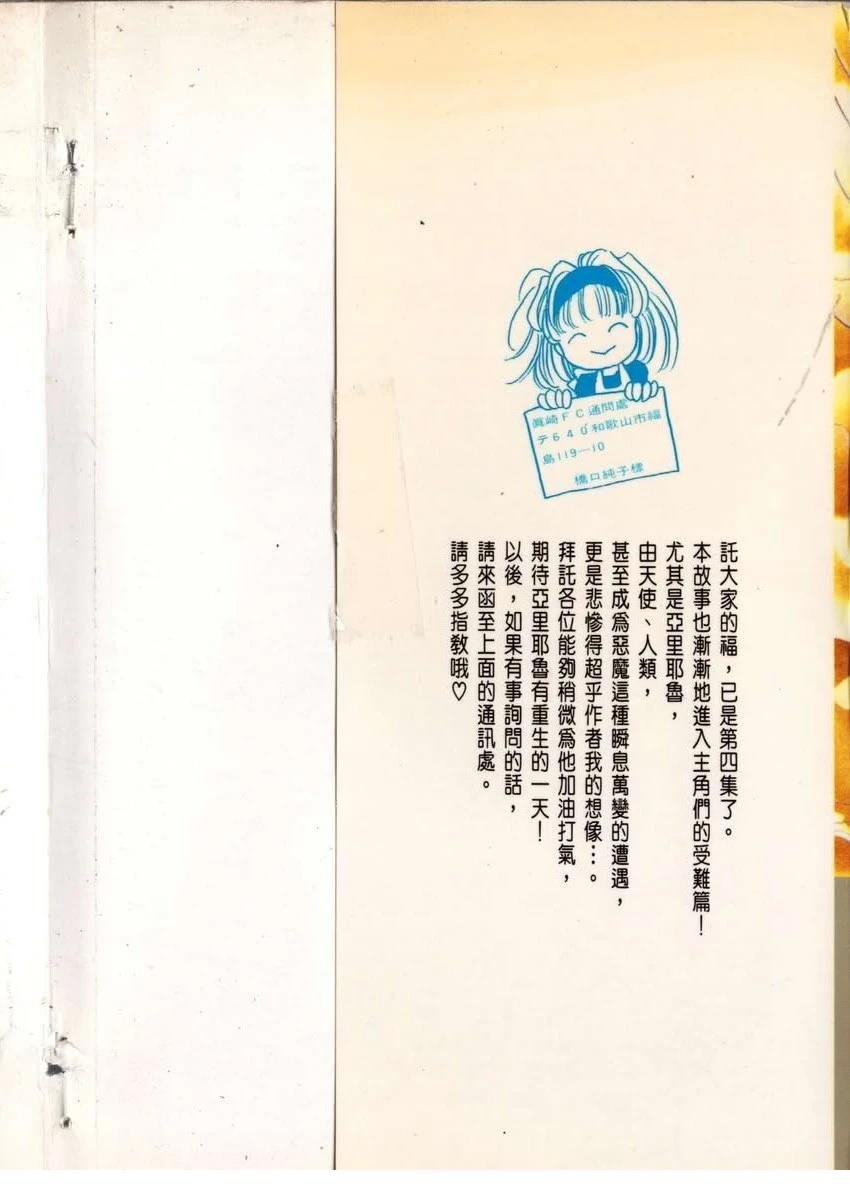 眞崎ＦＣ通問處
テ６４０和歌山市福
島119—10
橋口純子樣
託大家的福，已是第四集了。
本故事也漸漸地進入主角們的受難篇！
尤其是亞里耶魯，
由天使、人類，
甚至成為惡魔這種瞬息萬變的遭遇，
更是悲慘得超乎作者我的想像…。
拜託各位能夠稍微為他加油打氣，
期待亞里耶魯有重生的一天！
以後，如果有事詢問的話，
請來函至上面的通訊處。
請多多指教哦♡